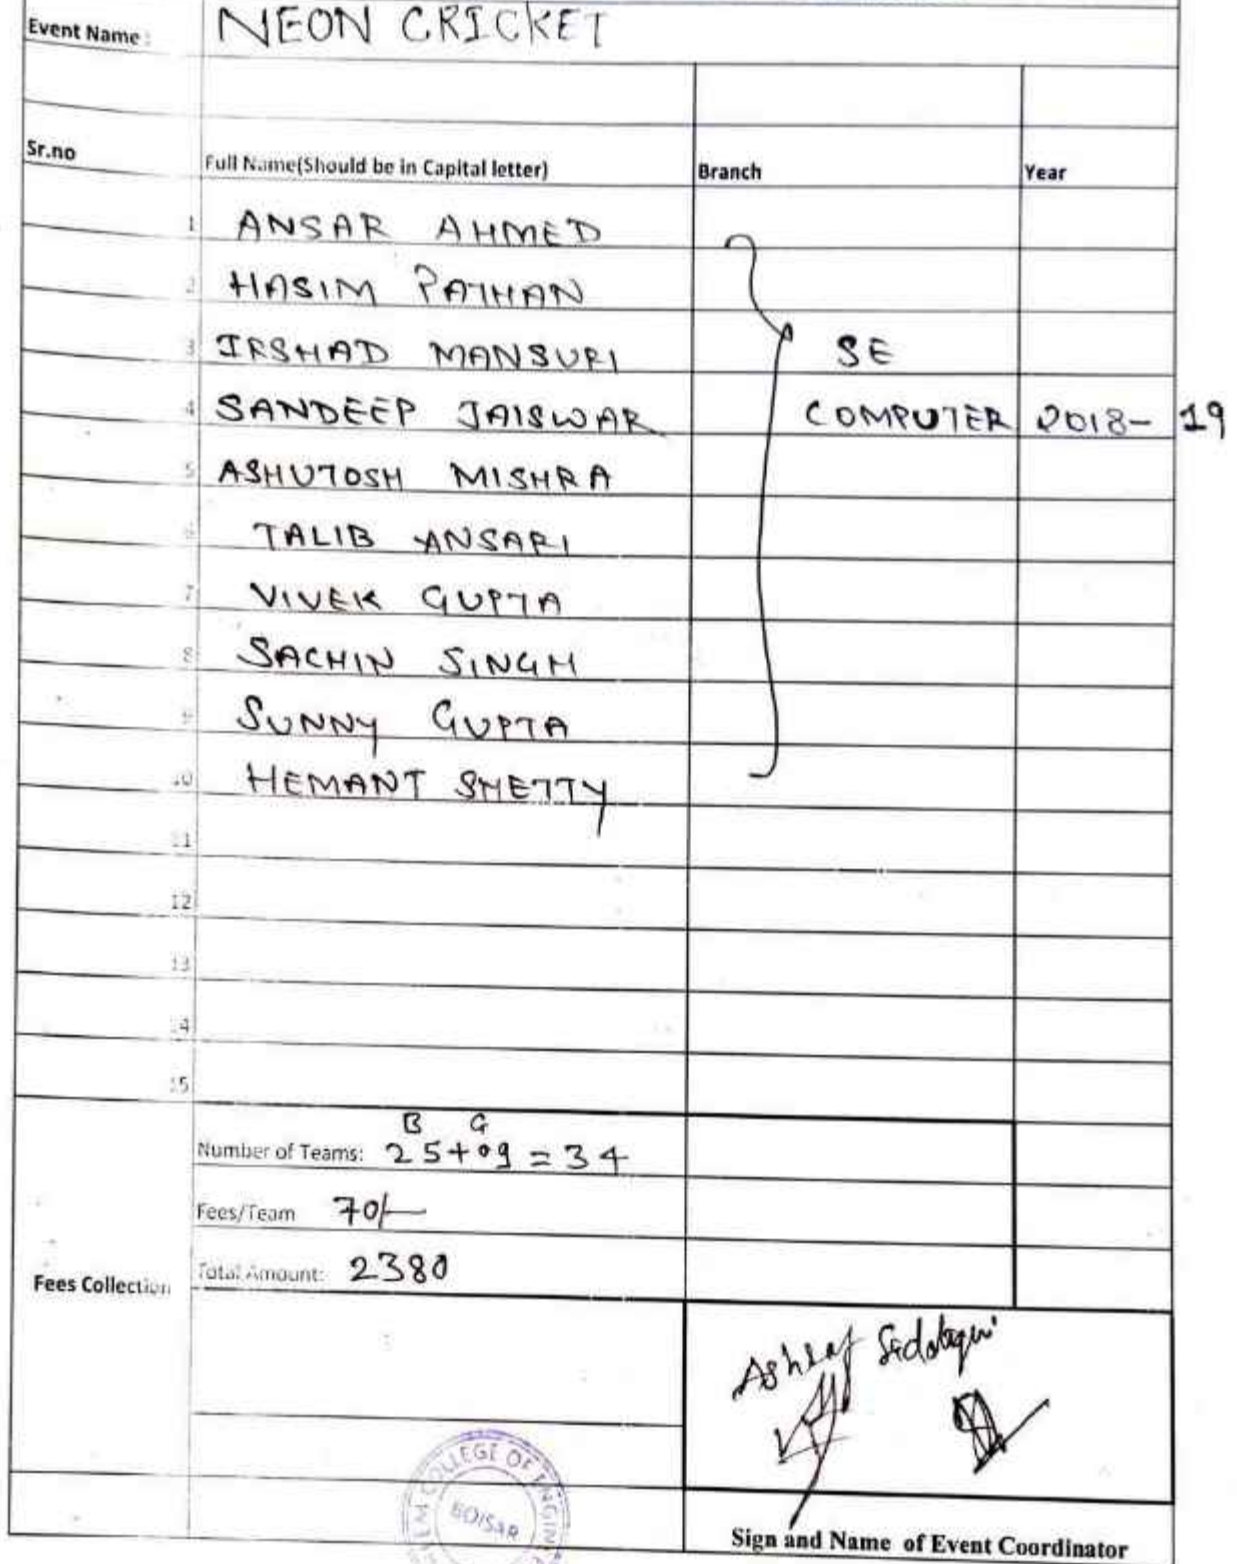 Event Name : NEON CRICKET
Sr.no Full Name(Should be in Capital letter) Branch Year
1 ANSAR AHMED
2 HASIM PATHAN
3 IRSHAD MANSURI SE
4 SANDEEP JAISWAR COMPUTER 2018-19
5 ASHUTOSH MISHRA
6 TALIB ANSARI
7 VIVEK GUPTA
8 SACHIN SINGH
9 SUNNY GUPTA
10 HEMANT SHETTY
11
12
13
14
15
B G
Number of Teams: 25+09=34
Fees/Team 70/-
Total Amount: 2380
Fees Collection
Ashraf
COLLEGE OF
BOISAR
Sign and Name of Event Coordinator